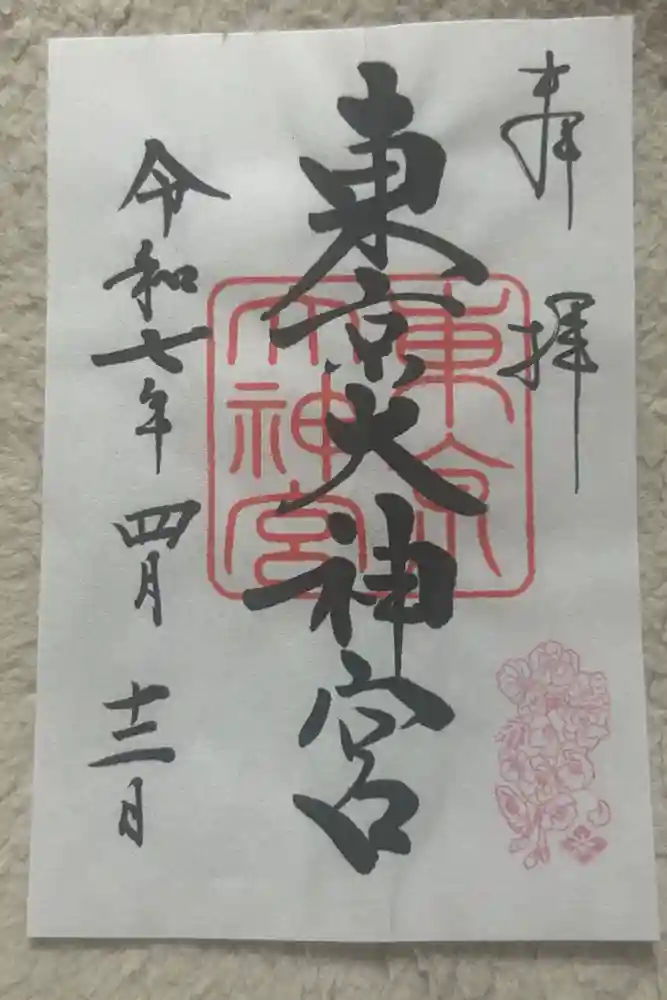 奉拝
東京大神宮
東京
大神宮
令和七年四月十三日